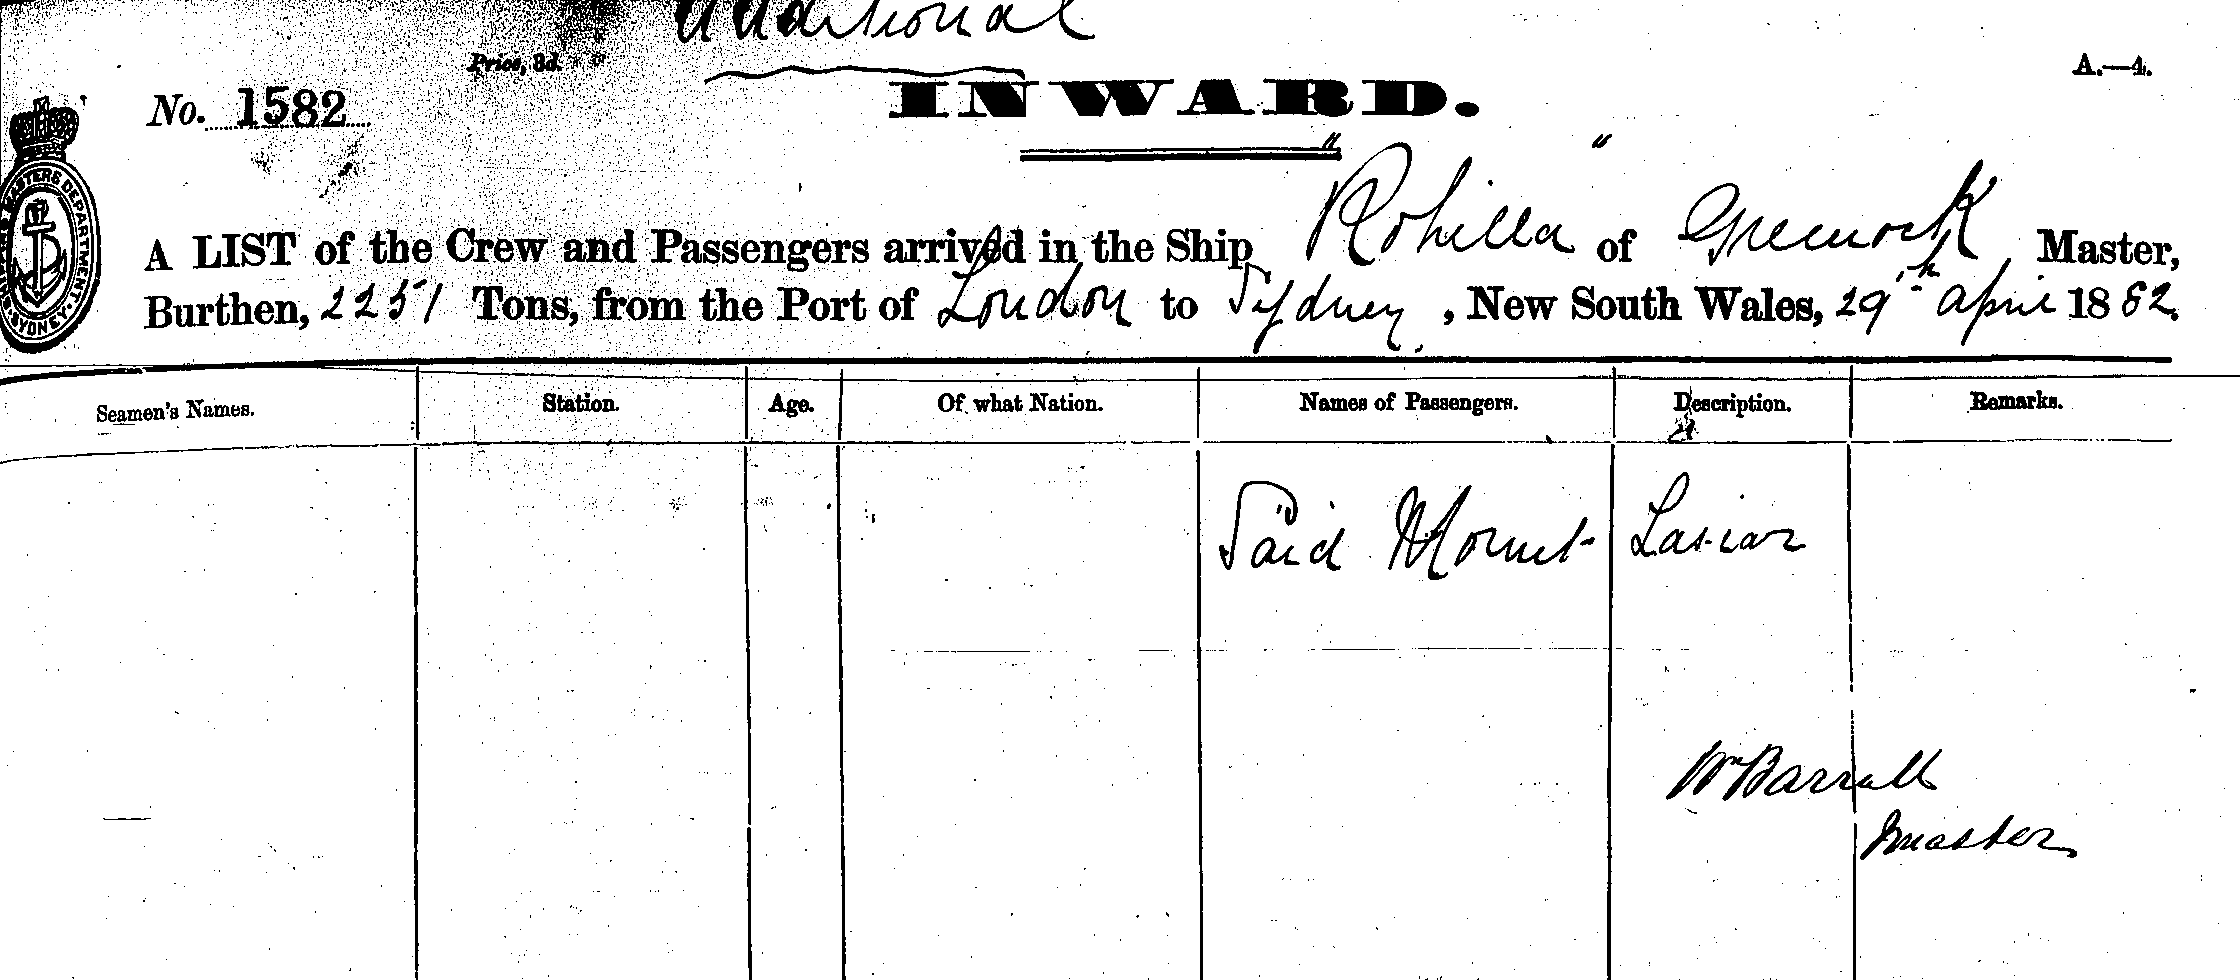 Additional
Price, 3d.
A.—4.
No. 1582
INWARD.
SHIPPING MASTERS DEPARTMENT. SYDNEY.
A LIST of the Crew and Passengers arrived in the Ship "Rohilla" of Greenock, Master,
Burthen, 2251 Tons, from the Port of London to Sydney, New South Wales, 29th April 1882.
Seamen's Names. Station. Age. Of what Nation. Names of Passengers. Description. Remarks.
Said Lascar
Wm Barratt
Master